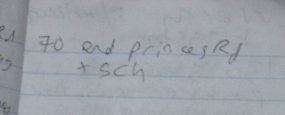 70 end princes Rd
+ sch